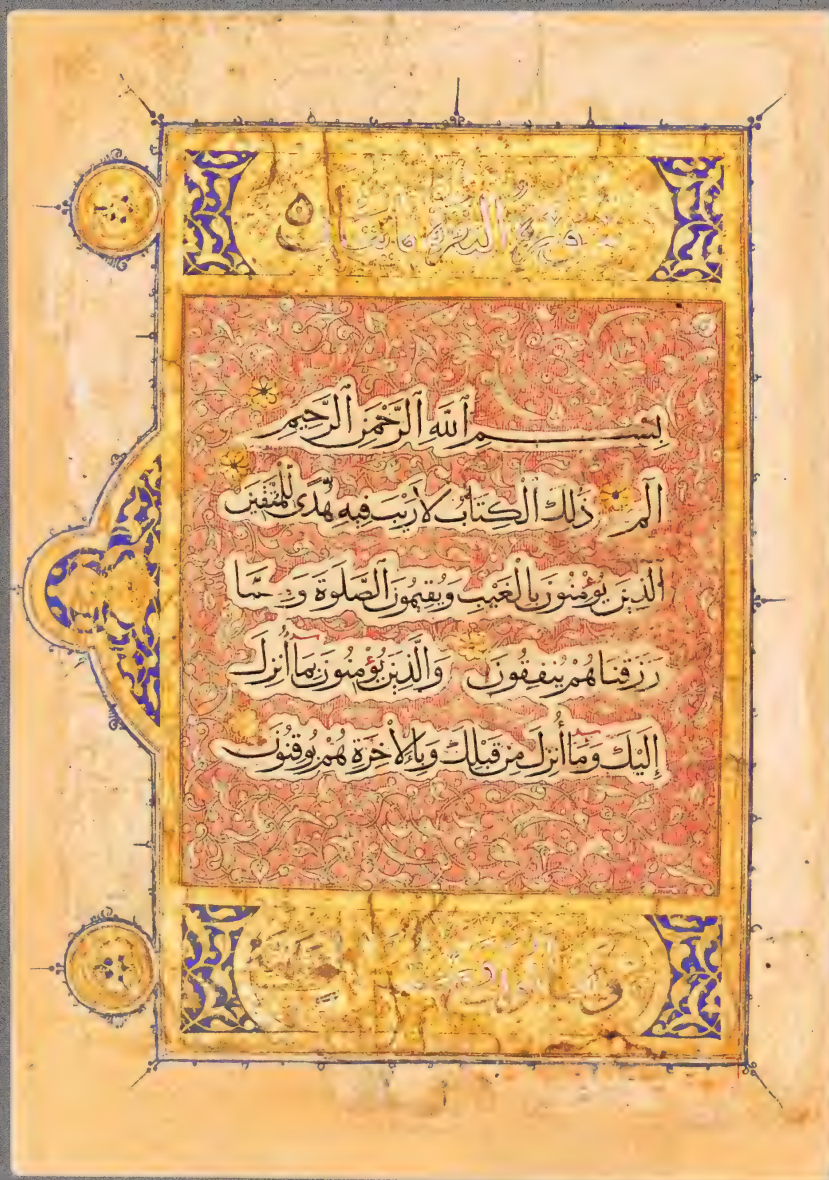 سورة البقرة مائتان
بِسْمِ ٱللَّهِ ٱلرَّحْمَٰنِ ٱلرَّحِيمِ
الٓمٓ ذَٰلِكَ ٱلْكِتَابُ لَا رَيْبَ فِيهِ هُدًى لِّلْمُتَّقِينَ
ٱلَّذِينَ يُؤْمِنُونَ بِالْغَيْبِ وَيُقِيمُونَ ٱلصَّلَوٰةَ وَمِمَّا
رَزَقْنَاهُمْ يُنفِقُونَ وَالَّذِينَ يُؤْمِنُونَ بِمَآ أُنزِلَ
إِلَيْكَ وَمَآ أُنزِلَ مِن قَبْلِكَ وَبِالْآخِرَةِ هُمْ يُوقِنُونَ